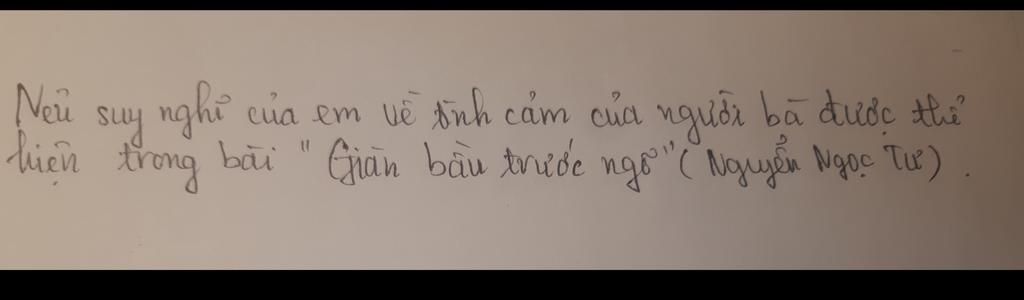 Nêu suy nghĩ của em về tình cảm của người bà được thể
hiện trong bài "Giàn bầu trước ngõ" (Nguyễn Ngọc Tư).